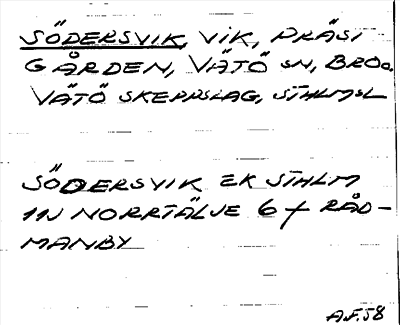 SÖDERSVIK, VIK, PRÄST
GÅRDEN, VÄTÖ SN, BRO o.
VÄTÖ SKEPPSLAG, STHLMSL
SÖDERSVIK EK STHLM
11N NORRTÄLJE 6 f RÅD-
MANBY
A.F.58